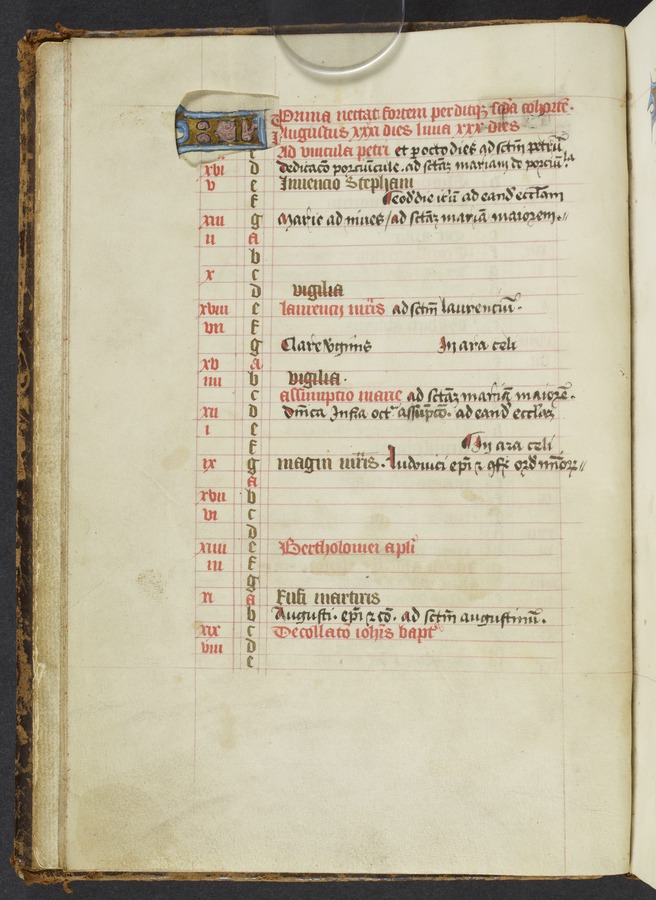 Prima necat fortem perditq3 scda cohorte.
Augustus xxxi dies luna xxx dies
c Ad vincula petri et p octo dies ad sctm petru
xvi d dedicaco porciucule. ad sctaz mariam de porciula
v e Inuencio Stephani
f Eod die itu ad eand ecclam
xiii g Marie ad niues / ad sctaz maria maiorem.
ii a
b
x c
d vigilia
xviii e laurencij mris ad sctm laurenciu.
vii f
g Clare vginis In ara celi
xv a
iiii b vigilia.
c assumptio marie ad sctaz maria maiore.
xii d dnica Infra oct assumpco. ad eand ecclaz
i e
f In ara celi
ix g magni mris. Ludouici epi 2 9fes ord minor
a
xvii b
vi c
d
xiiii e Bertholomei apli
iii f
g
xi a Rufi martiris
b Augusti. epi 2 co. ad sctm augustinu.
xix c Decollaco iohis bapt
viii d
e